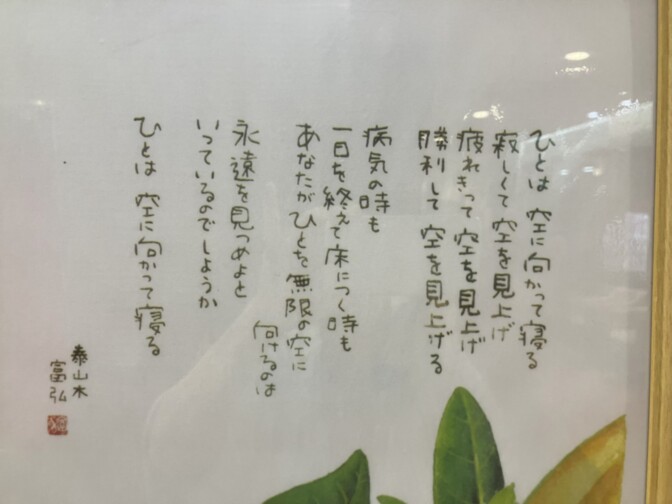 ひとは 空に向かって寝る
寂しくて 空を見上げ
疲れきって 空を見上げ
勝利して 空を見上げる
病気の時も
一日を終えて床につく時も
あなたがひとを無限の空に
向けるのは
永遠を見つめよと
いっているのでしょうか
ひとは 空に向かって寝る
泰山木
富弘